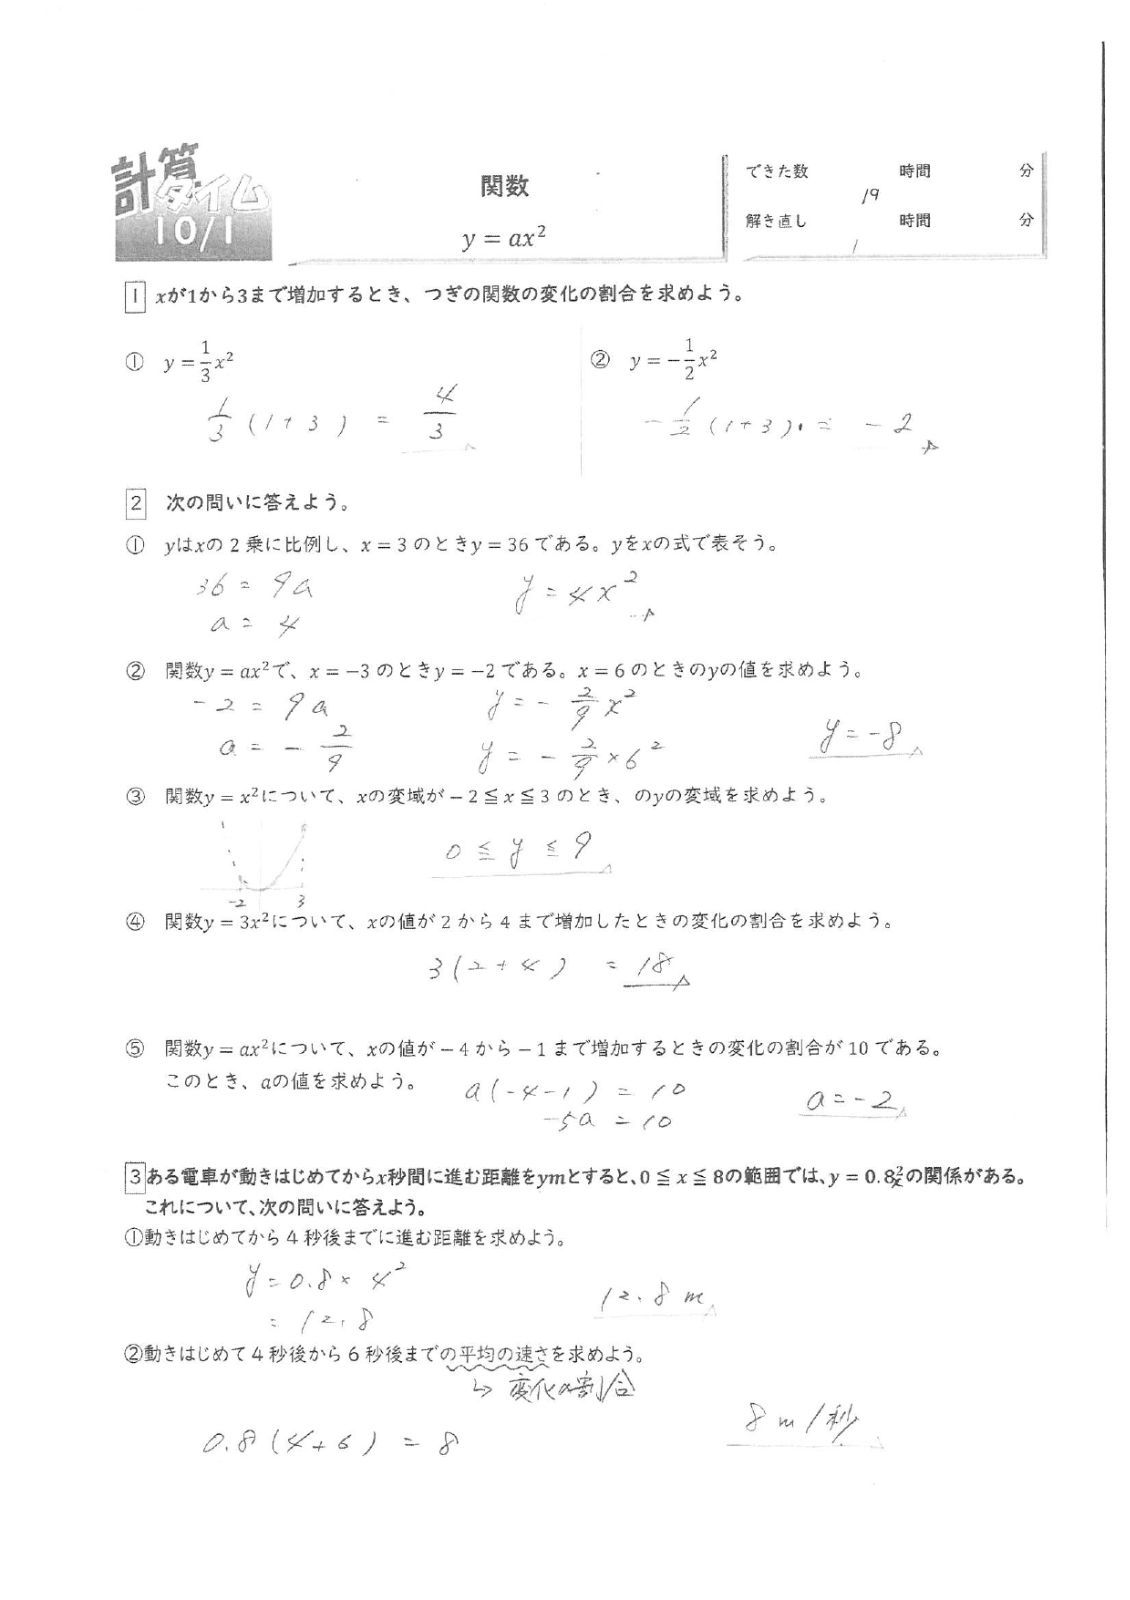 計算タイム
10/1
関数
y = ax²
できた数 時間 分
19
解き直し 時間 分
1
1 xが1から3まで増加するとき、つぎの関数の変化の割合を求めよう。
① y = 1/3 x²
1/3 (1+3) = 4/3
② y = −1/2 x²
−1/2 (1+3) = −2
2 次の問いに答えよう。
① yはxの2乗に比例し、x = 3のときy = 36である。yをxの式で表そう。
36 = 9a
a = 4
y = 4x²
② 関数y = ax²で、x = −3のときy = −2である。x = 6のときのyの値を求めよう。
−2 = 9a
a = −2/9
y = −2/9 x²
y = −2/9 × 6²
y = −8
③ 関数y = x²について、xの変域が−2 ≦ x ≦ 3のとき、のyの変域を求めよう。
-2 3
0 ≦ y ≦ 9
④ 関数y = 3x²について、xの値が2から4まで増加したときの変化の割合を求めよう。
3(2+4) = 18
⑤ 関数y = ax²について、xの値が−4から−1まで増加するときの変化の割合が10である。
このとき、aの値を求めよう。
a(-4-1) = 10
-5a = 10
a = -2
3 ある電車が動きはじめてからx秒間に進む距離をymとすると、0 ≦ x ≦ 8の範囲では、y = 0.8x²の関係がある。
これについて、次の問いに答えよう。
①動きはじめてから4秒後までに進む距離を求めよう。
y = 0.8 × 4²
= 12.8
12.8 m
②動きはじめて4秒後から6秒後までの平均の速さを求めよう。
↳ 変化の割合
0.8(4+6) = 8
8 m/秒